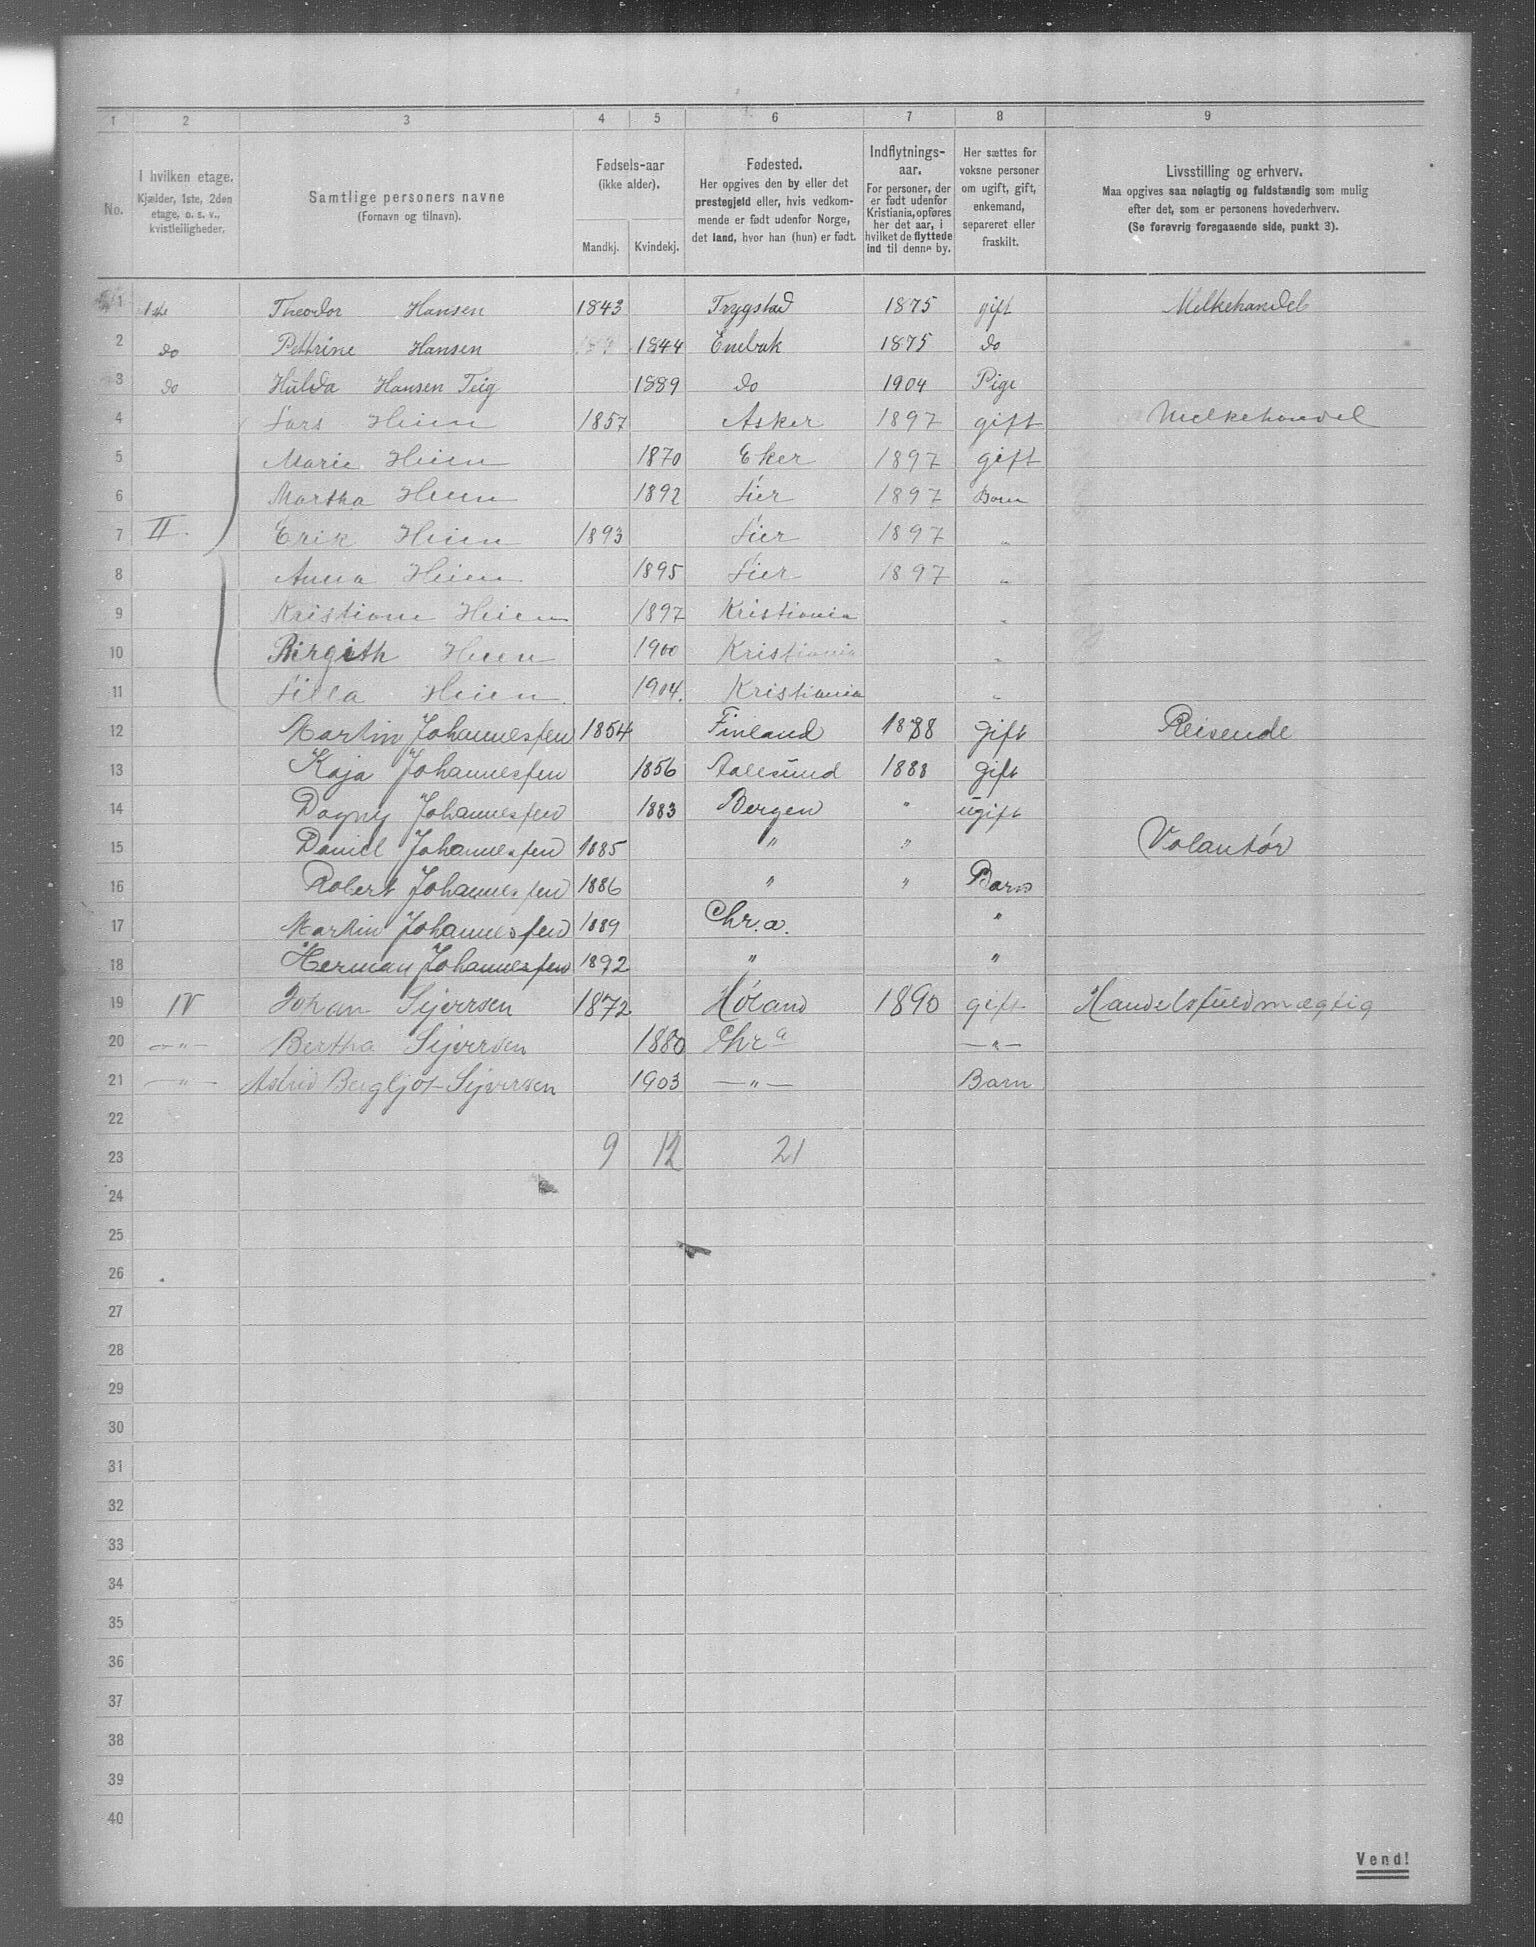 1 2 3 4 5 6 7 8 9
No.
I hvilken etage.
Kjælder, 1ste, 2den
etage, o. s. v.,
kvistleiligheder.
Samtlige personers navne
(Fornavn og tilnavn).
Fødsels-aar
(ikke alder).
Mandkj. Kvindekj.
Fødested.
Her opgives den by eller det
prestegjeld eller, hvis vedkom-
mende er født udenfor Norge,
det land, hvor han (hun) er født.
Indflytnings-
aar.
For personer, der
er født udenfor
Kristiania, opføres
her det aar, i
hvilket de flyttede
ind til denne by.
Her sættes for
voksne personer
om ugift, gift,
enkemand,
separeret eller
fraskilt.
Livsstilling og erhverv.
Maa opgives saa nøiagtig og fuldstændig som mulig
efter det, som er personens hovederhverv.
(Se forøvrig foregaaende side, punkt 3).
1 1ste Theodor Hansen 1843 Trygstad 1875 gift Melkehandel
2 do Pettrine Hansen 1844 Enebak 1875 do
3 do Hulda Hansen Teig 1889 do 1904 Pige
4 Lars Heien 1857 Asker 1897 gift Melkehandel
5 Marie Heien 1870 Eker 1897 gift
6 Martha Heien 1892 Lier 1897 Barn
7 II. Erik Heien 1893 Lier 1897 "
8 Anna Heien 1895 Lier 1897 "
9 Kristiane Heien 1897 Kristiania "
10 Birgith Heien 1900 Kristiania "
11 Lilla Heien 1904. Kristiania "
12 Martin Johannesſen 1854 Finland 1888 gift Reisende
13 Kaja Johannesſen 1856 Aalesund 1888 gift
14 Dagny Johannesſen 1883 Bergen " ugift
15 Daniel Johannesſen 1885 " " Volantør
16 Robert Johannesſen 1886 " " Barn
17 Martin Johannesſen 1889 Chr.a. "
18 Herman Johannesſen 1892 " "
19 IV Johan Sijversen 1872 Høland 1890 gift Handelsfuldmægtig
20 —"— Bertha Sijversen 1880 Chra —"—
21 —"— Astrid Bergljot Sijversen 1903 —"— Barn
22
23 9 12 21
24
25
26
27
28
29
30
31
32
33
34
35
36
37
38
39
40
Vend!